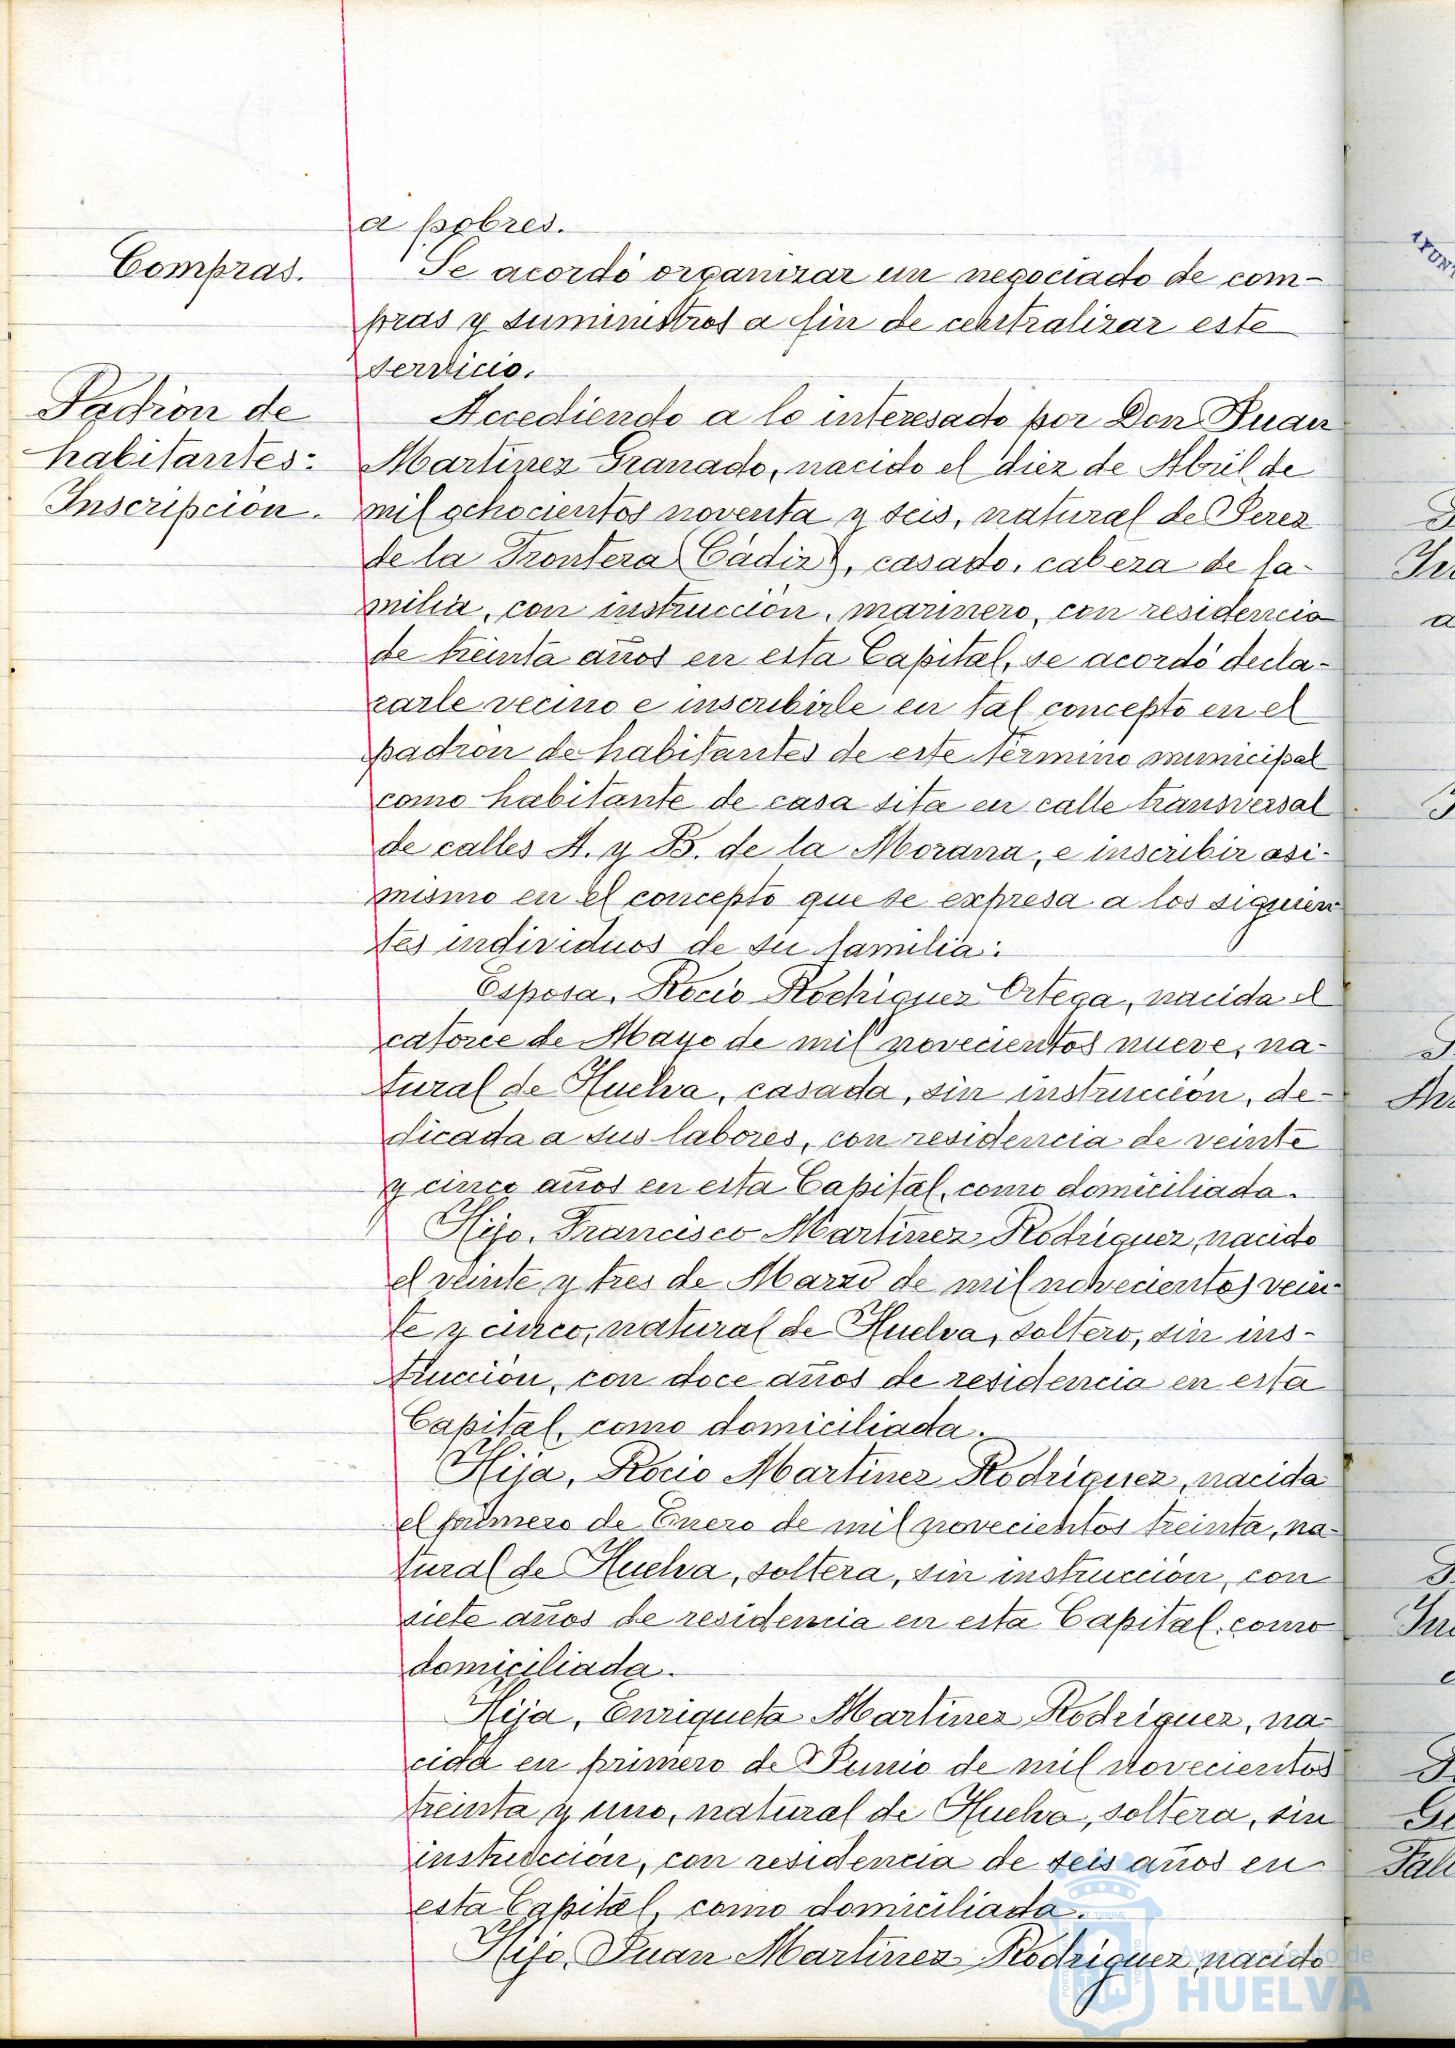 a pobres.
Compras.
Se acordó organizar un negociado de com-
pras y suministros a fin de centralizar este
servicio.
Padrón de
habitantes:
Inscripción.
Accediendo a lo interesado por Don Juan
Martinez Granado, nacido el diez de Abril de
mil ochocientos noventa y seis, natural de Jerez
de la Frontera (Cádiz), casado, cabeza de fa-
milia, con instrucción, marinero, con residencia
de treinta años en esta Capital, se acordó decla-
rarle vecino e inscribirle en tal concepto en el
padrón de habitantes de este término municipal
como habitante de casa sita en calle transversal
de calles A. y B. de la Morana, e inscribir asi-
mismo en el concepto que se expresa a los siguien
tes individuos de su familia:
Esposa, Rocio Rodriguez Ortega, nacida el
catorce de Mayo de mil novecientos nueve, na-
tural de Huelva, casada, sin instrucción, de-
dicada a sus labores, con residencia de veinte
y cinco años en esta Capital, como domiciliada.
Hijo, Francisco Martinez Rodriguez, nacido
el veinte y tres de Marzo de mil novecientos vein-
te y cinco, natural de Huelva, soltero, sin ins-
trucción, con doce años de residencia en esta
Capital, como domiciliada.
Hija, Rocio Martinez Rodriguez, nacida
el primero de Enero de mil novecientos treinta, na-
tural de Huelva, soltera, sin instrucción, con
siete años de residencia en esta Capital, como
domiciliada.
Hija, Enriqueta Martinez Rodriguez, na-
cida en primero de Junio de mil novecientos
treinta y uno, natural de Huelva, soltera, sin
instrucción, con residencia de seis años en
esta Capital, como domiciliada.
Hijo, Juan Martinez Rodriguez, nacido
Ayuntamiento de
HUELVA